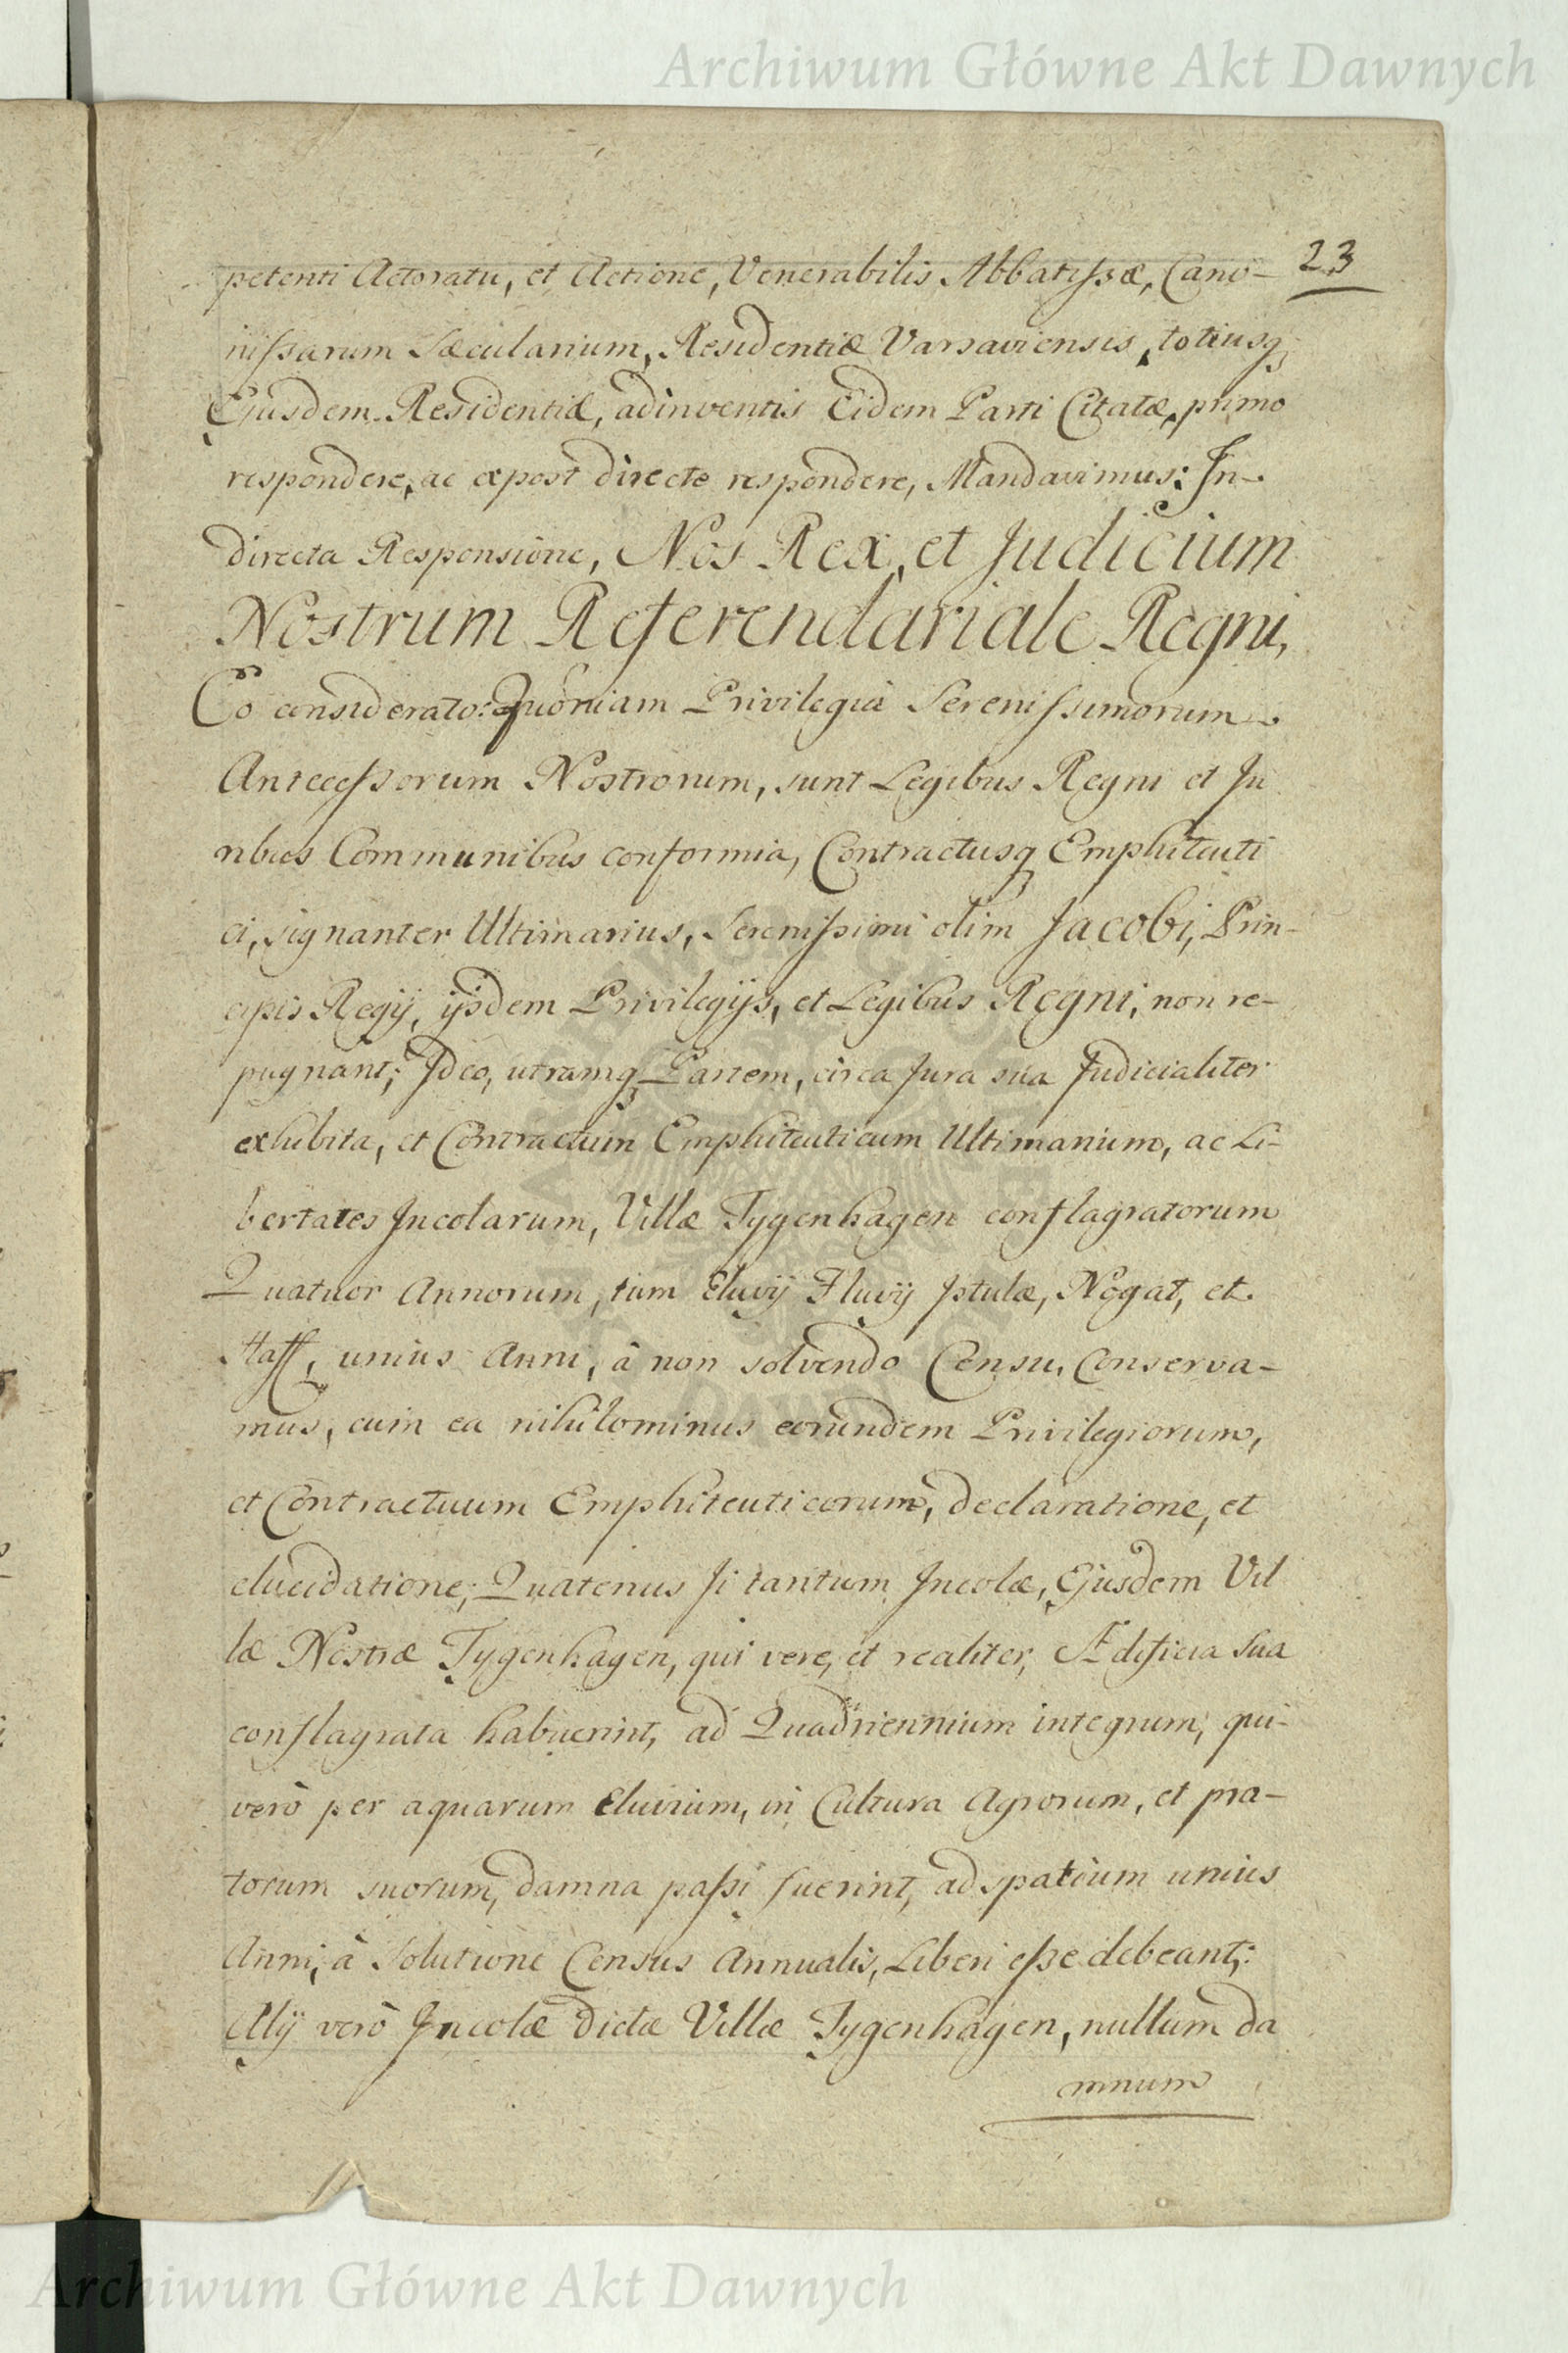 Archiwum Główne Akt Dawnych
23
petenti Actoratu, et Actione, Venerabilis Abbatißæ, Cano-
nißarum Sæcularium, Residentiæ Varsaviensis, totiusq;
Ejusdem Residentiæ, adinventis Eidem Parti Citatæ, primo
respondere, ac expost directe respondere, Mandavimus: In-
directa Responsione, Nos Rex, et Judicium
Nostrum Referendariale Regni,
Eo considerato: Quoniam Privilegia Serenissimorum
Antecessorum Nostrorum, sunt Legibus Regni et Ju
ribus Communibus conformia, Contractusq; Emphiteuti
ci, signanter Ultimarius, Serenißimi olim Jacobi, Prin-
cipis Regij, ijsdem Privilegijs, et Legibus Regni, non re-
pugnant; Ideo, utramq; Partem, circa Jura sua Judicialiter
exhibita, et Contractum Emphiteuticum Ultimarium, ac Li-
bertates Incolarum, Villæ Tygenhagen conflagratorum
Quatuor Annorum, tum Eluvij Fluvij Istulæ, Nogat, et
Haff, unius Anni, à non solvendo Censu, Conserva-
mus, cum ea nihilominus eorundem Privilegiorum,
et Contractuum Emphiteuticorum, declaratione, et
elucidatione; Quatenus Ii tantum Incolæ, Ejusdem Vil
læ Nostræ Tygenhagen, qui vere, et realiter, Ædificia Sua
conflagrata habuerint, ad Quadriennium integrum; qui-
verò per aquarum Eluvium, in Cultura Agrorum, et pra-
torum suorum, damna paßi fuerint, ad spatium unius
Anni, à Solutione Census Annualis, Liberi eße debeant;
Alij verò Incolæ dictæ Villæ Tygenhagen, nullum da
mnum
Archiwum Główne Akt Dawnych